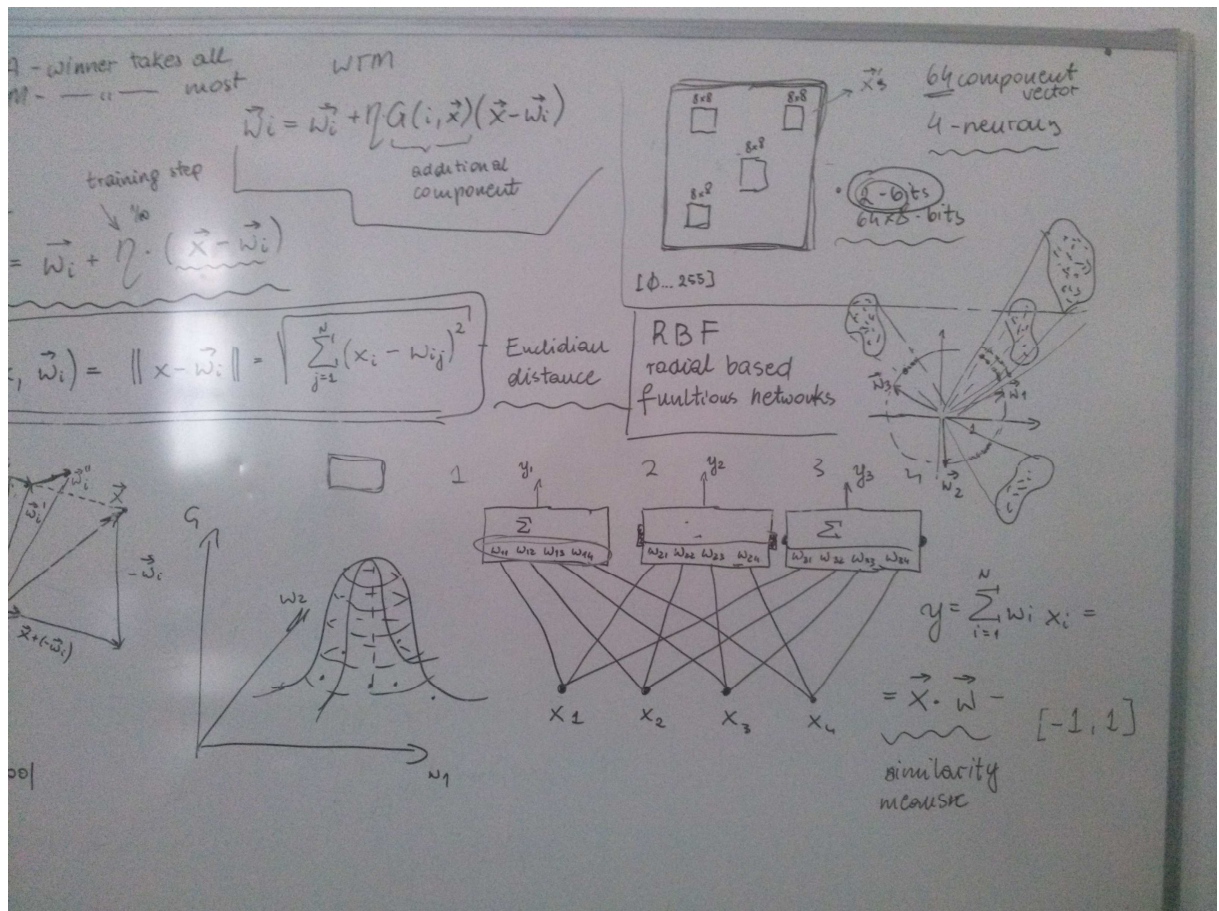 A - winner takes all
M - — " — most
WTM
w⃗i = w⃗i + η G(i, x⃗)(x⃗ - w⃗i)
additional
component
training step
= w⃗i + η · (x⃗ - w⃗i)
, w⃗i) = ‖ x - w⃗i ‖ = √ Σ j=1 N (xi - wij)²
Euclidian
distance
8x8
8x8
8x8
8x8
x⃗'s
64 component
vector
4 - neurons
2 - bits
64x8 - bits
[0... 255]
RBF
radial based
funltious networks
w⃗3
w⃗1
w⃗2
1
1
w⃗i'
w⃗i''
x⃗
-w⃗i
x⃗+(-w⃗i)
G
w2
w1
1
y1
2
y2
3
y3
4
Σ
Σ
w11 w12 w13 w14
w21 w22 w23 w24
w31 w32 w33 w34
x1
x2
x3
x4
y = Σ i=1 N wi xi =
= x⃗ · w⃗ -
[-1, 1]
similarity
measure